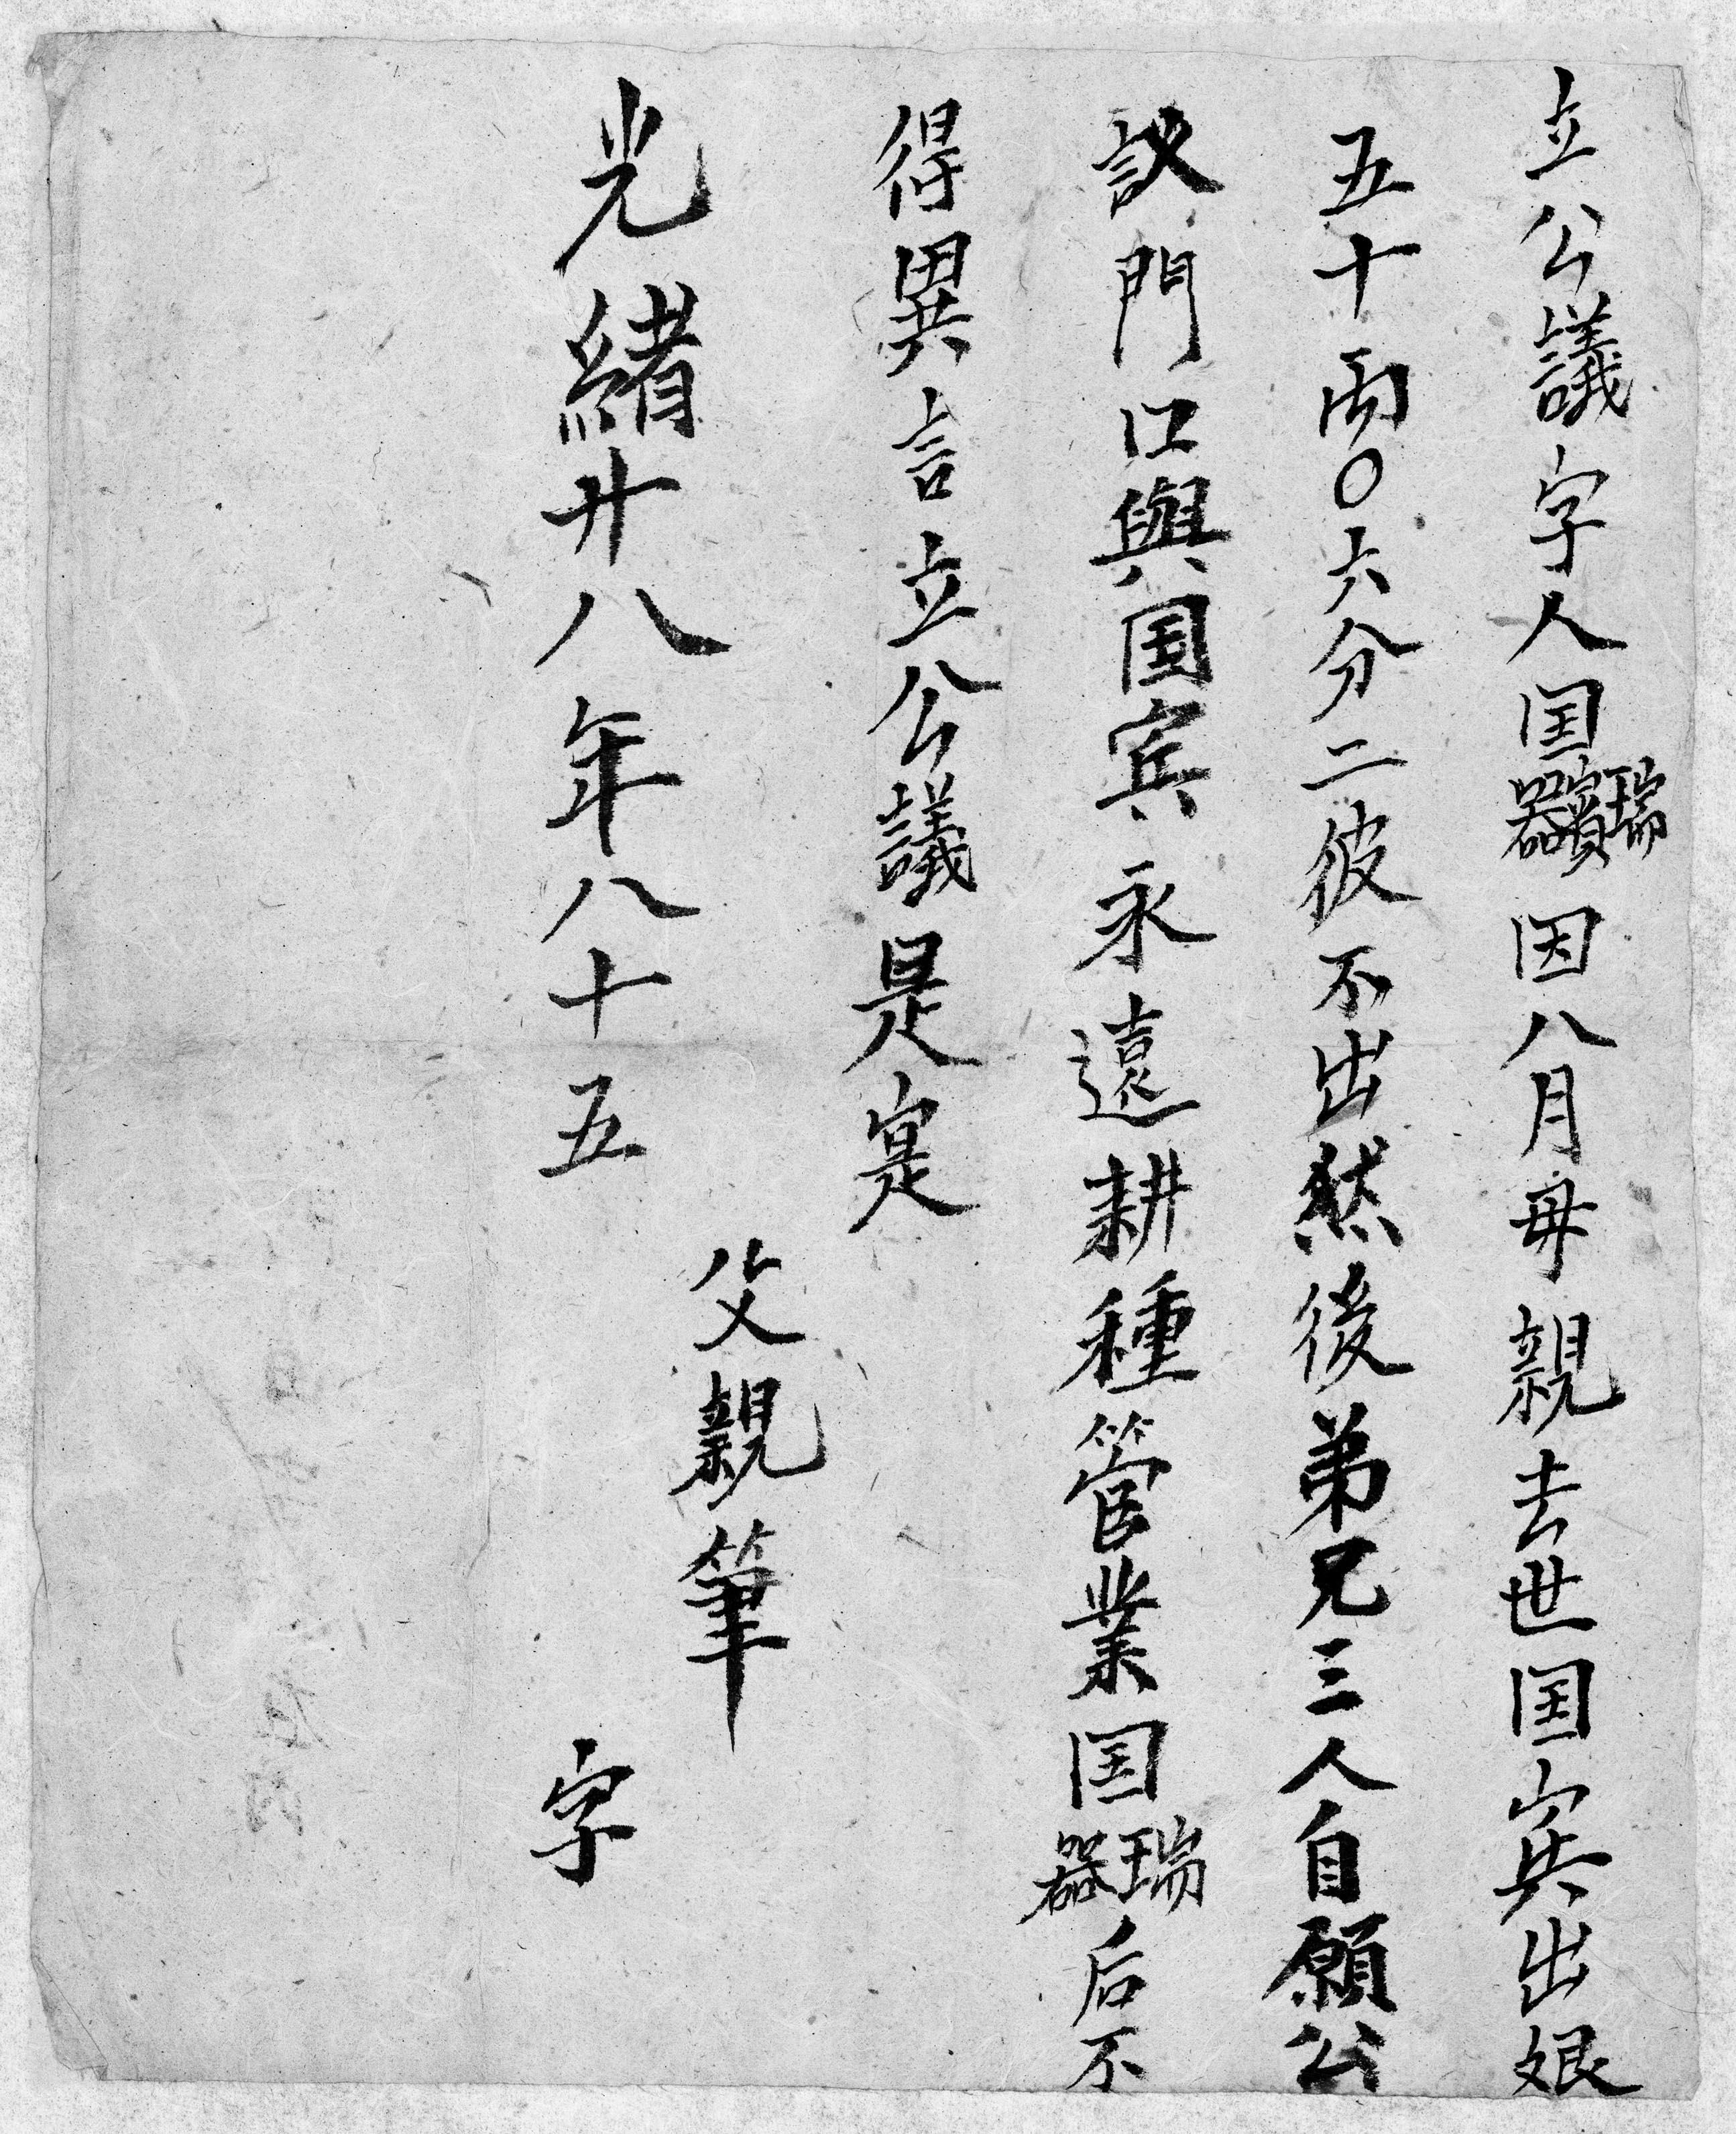 立公議字人国瑞賔器因八月毋親去世国賔出娘
五十両〇六分二彼不出然後弟兄三人自願公
議門口與国賔永遠耕種管業国瑞器后不
得異言立公議是寔
父親筆
光緒廿八年八十五 字